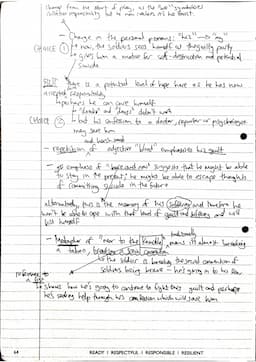 change from the start of play, as the "we" symbolises
collective responsibility but he now realises it's his fault.
- Change in the personal pronoun: "his" → "my"
CHOICE ①
→ now, the soldier sees himself as the guilty party
→ gives him a motive for self-destruction and potential
suicide
BUT there is a potential level of hope here as he has now
accepted responsibility
→ perhaps he can save himself
→ "drink" and "drugs" didn't work
CHOICE ②
- but his confession to a doctor, reporter or psychologist
may save him
- repetition of adjective "bloody" emphasises his guilt
→ emphasis of "here and now" suggests that he might be able
to stay in the present, he might be able to escape thoughts
of committing suicide in the future
alternatively, this is the memory of his suffering and therefore he
won't be able to cope with that level of guilt and suffering and will
kill himself
- Metaphor of "near to the knuckle" means it's almost breaking
a taboo, breaking a social convention
→ the soldier is breaking the social convention of
soldiers being brave - he's giving in to his fear
reference to
a fist
→ shows how he's going to continue to fight this guilt and perhaps
he's seeking help through his confession which will save him
64
READY | RESPECTFUL | RESPONSIBLE | RESILIENT